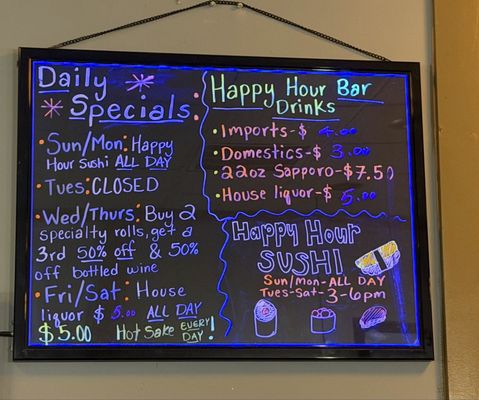 Daily
Specials:
• Sun/Mon: Happy
Hour Sushi ALL DAY
• Tues: CLOSED
• Wed/Thurs: Buy 2
specialty rolls, get a
3rd 50% off & 50%
off bottled wine
• Fri/Sat: House
liquor $ 5.00 ALL DAY
$5.00 Hot Sake EVERY DAY!
Happy Hour Bar
Drinks
• Imports-$ 4.00
• Domestics-$ 3.00
• 22oz Sapporo-$7.50
• House liquor-$ 5.00
Happy Hour
SUSHI
Sun/Mon-ALL DAY
Tues-Sat-3-6pm